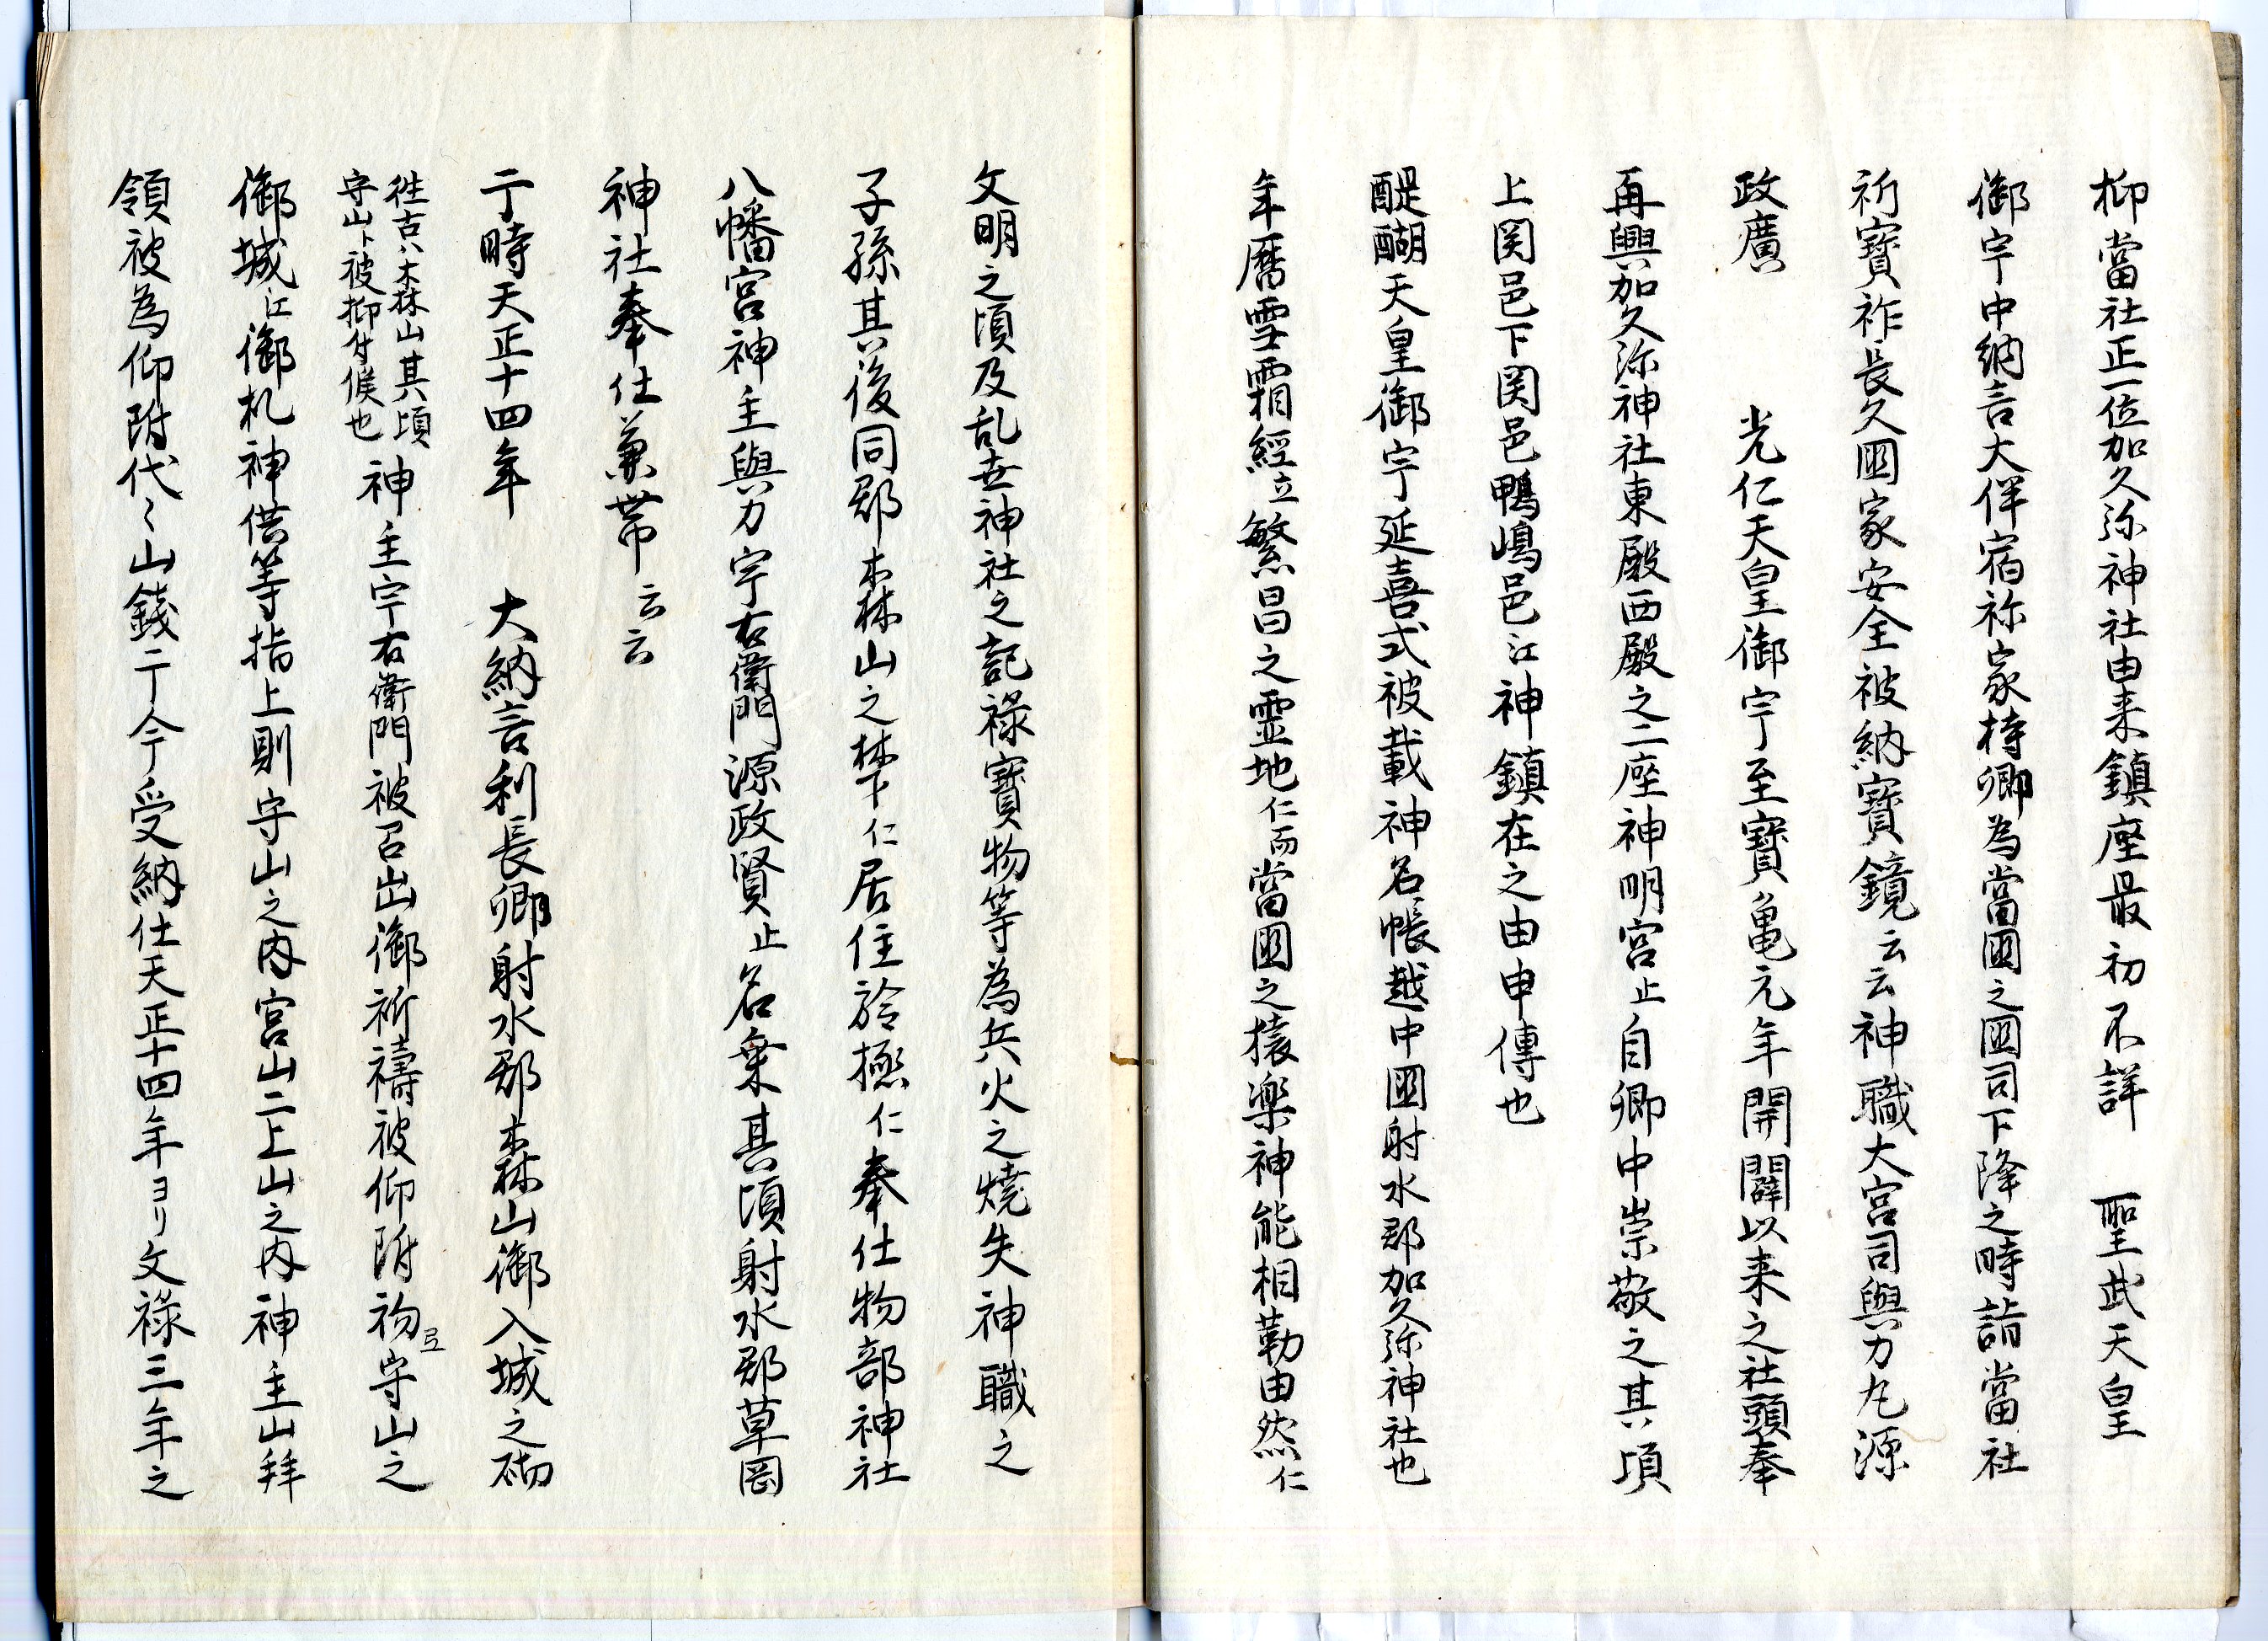 抑當社正一位加久弥神社由来鎮座最初不詳　聖武天皇
御宇中納言大伴宿祢家持卿為當國之國司下降之時詣當社
祈寶祚長久國家安全被納寶鏡云云神職大宮司與力左源
政廣　　光仁天皇御宇至寶亀元年開闢以来之社頭奉
再興加久弥神社東殿西殿之二座神明宮止自卿中崇敬之其頃
上関邑下関邑鴨嶋邑江神鎮在之由申傳也
醍醐天皇御宇延喜式被載神名帳越中國射水郡加久弥神社也
年暦雪霜經立繁昌之霊地仁而當國之猿楽神能相勤由然仁
文明之頃及乱世神社之記祿寶物等為兵火之燒失神職之
子孫其後同郡森山之梺仁居住於極仁奉仕物部神社
八幡宮神主與力宇右衛門源政賢止名乗其頃射水郡草岡
神社奉仕兼帯云云
于時天正十四年　大納言利長卿射水郡森山御入城之砌
往古ハ森山其頃
守山ト被抑付候也
神主宇右衛門被召出御祈禱被仰附初守山之
御城江御札神供等指上則守山之内宮山二上山之内神主山拝
領被為仰附代〻山錢于今受納仕天正十四年ヨリ文祿三年之